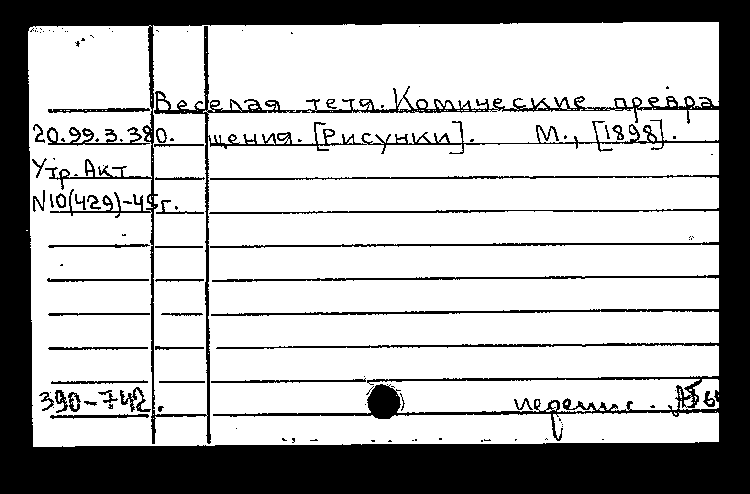 Веселая тетя. Комические превра
20.99.3.380. щения. [Рисунки]. М., [1898].
Утр. Акт
N10(429)-45г.
390-742. перепис.